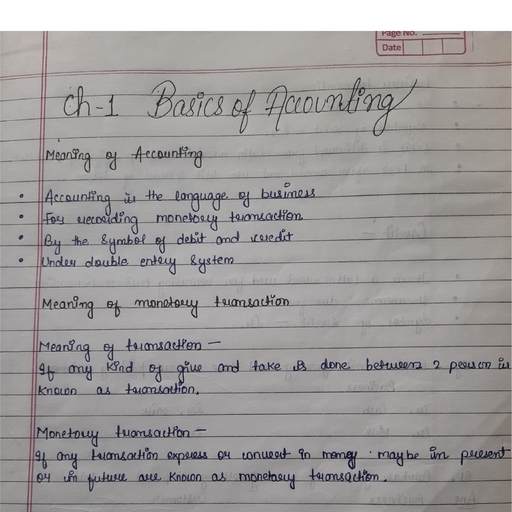 Page No.
Date
Ch-1 Basics of Accounting
Meaning of Accounting
• Accounting is the language of business
• For recording monetory transaction
• By the symbol of debit and credit
• Under double entry system
Meaning of monetory transaction
Meaning of transaction —
If any kind of give and take is done between 2 person is
known as transaction.
Monetory transaction —
If any transaction express or convert in money. may be in present
or in future are known as monetary transaction.